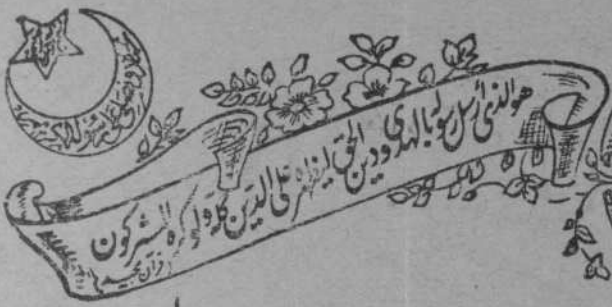 هو الذی ارسل رسوله بالهدی و دین الحق لیظهره علی الدین کله ولو کره المشرکون
قرآن مجید